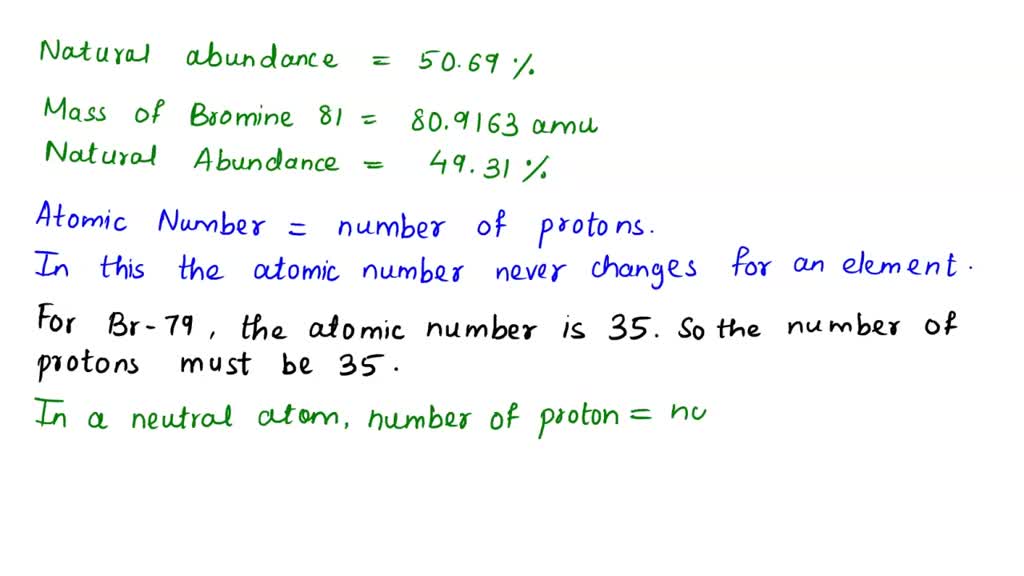 Natural abundance = 50.69 %
Mass of Bromine 81 = 80.9163 amu
Natural Abundance = 49.31 %
Atomic Number = number of protons.
In this the atomic number never changes for an element.
For Br-79, the atomic number is 35. So the number of
protons must be 35.
In a neutral atom, number of proton = no